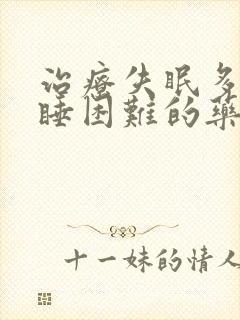 治療失眠多
睡困難的藥
十一妹的情人